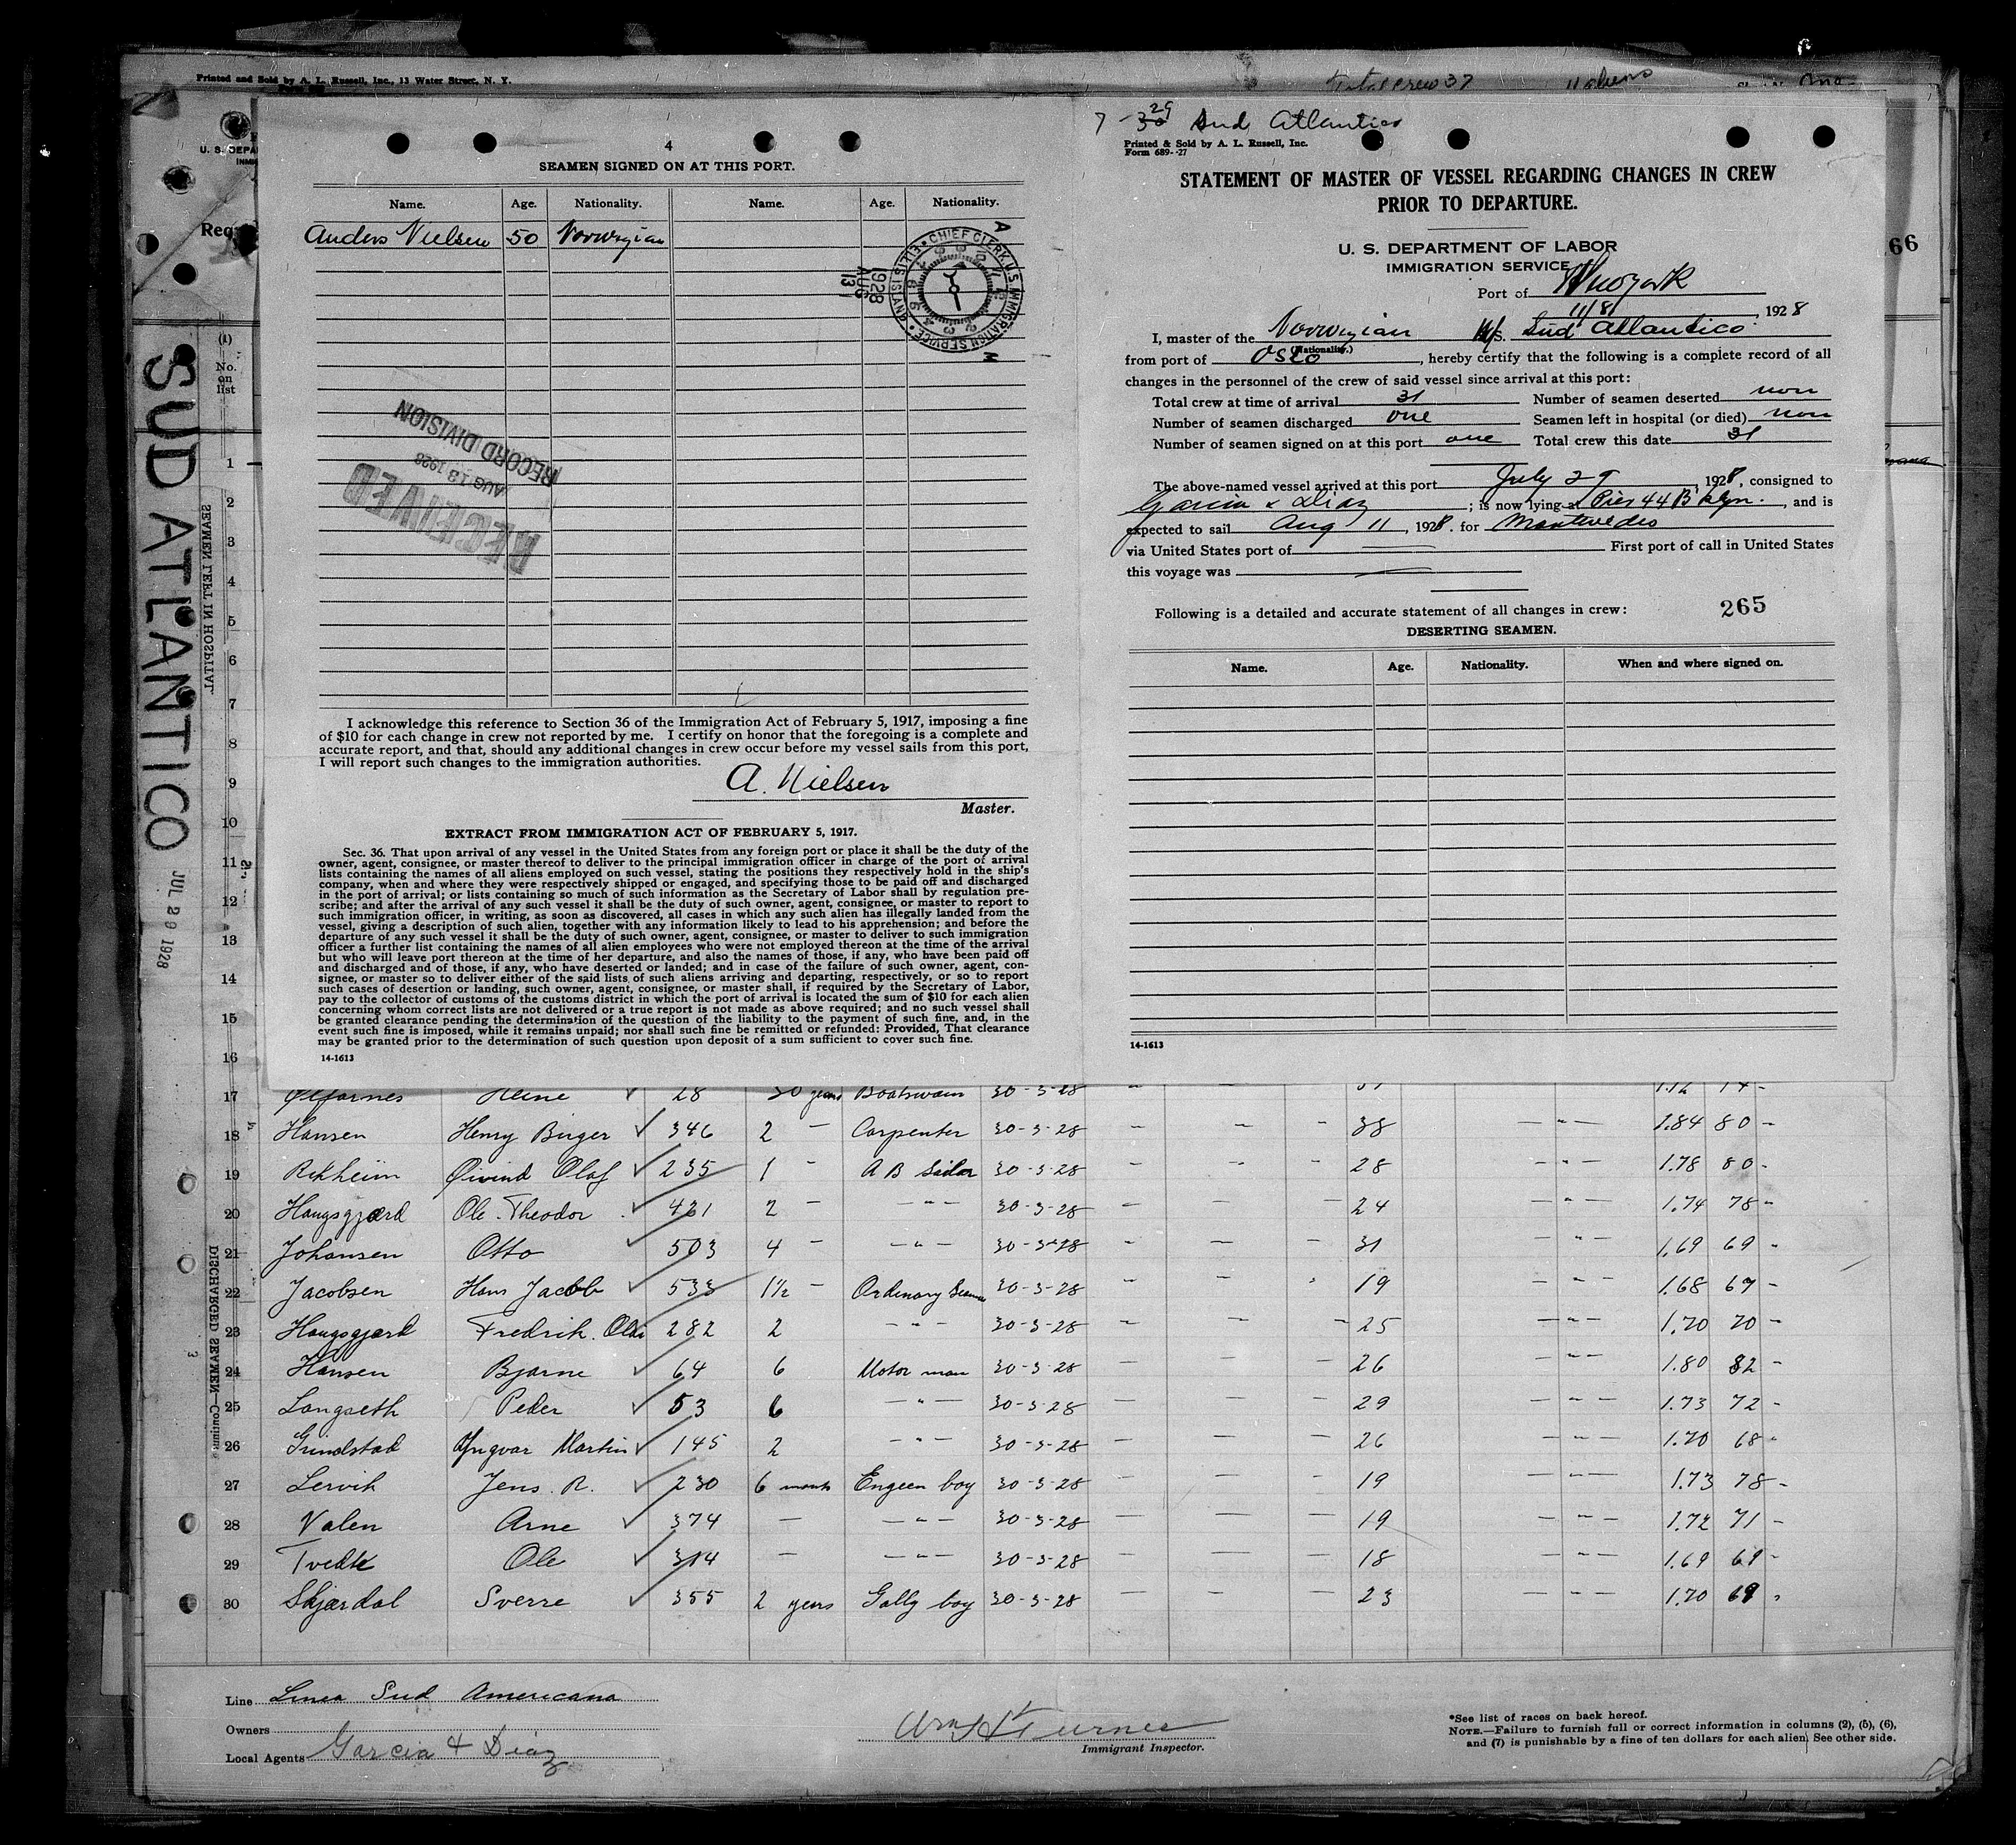 Printed and Sold by A. L. Russell, Inc., 13 Water Street, N. Y.
Total crew 37
U. S. DEPA
Requ
66
(1)
No.
on
list
SUD ATLANTICO
JUL 29 1928
SEAMEN LEFT IN HOSPITAL
DISCHARGED SEAMEN—Continu
3
4
SEAMEN SIGNED ON AT THIS PORT.
Name. Age. Nationality. Name. Age. Nationality.
Anders Nielsen 50 Norwegian
CHIEF CLERK U.S. IMMIGRATION SERVICE ELLIS ISLAND
1928
AUG
13
A
M
RECORD DIVISION
AUG 13 1928
RECEIVED
I acknowledge this reference to Section 36 of the Immigration Act of February 5, 1917, imposing a fine
of $10 for each change in crew not reported by me. I certify on honor that the foregoing is a complete and
accurate report, and that, should any additional changes in crew occur before my vessel sails from this port,
I will report such changes to the immigration authorities.
A. Nielsen
Master.
EXTRACT FROM IMMIGRATION ACT OF FEBRUARY 5, 1917.
Sec. 36. That upon arrival of any vessel in the United States from any foreign port or place it shall be the duty of the
owner, agent, consignee, or master thereof to deliver to the principal immigration officer in charge of the port of arrival
lists containing the names of all aliens employed on such vessel, stating the positions they respectively hold in the ship's
company, when and where they were respectively shipped or engaged, and specifying those to be paid off and discharged
in the port of arrival; or lists containing so much of such information as the Secretary of Labor shall by regulation pre-
scribe; and after the arrival of any such vessel it shall be the duty of such owner, agent, consignee, or master to report to
such immigration officer, in writing, as soon as discovered, all cases in which any such alien has illegally landed from the
vessel, giving a description of such alien, together with any information likely to lead to his apprehension; and before the
departure of any such vessel it shall be the duty of such owner, agent, consignee, or master to deliver to such immigration
officer a further list containing the names of all alien employees who were not employed thereon at the time of the arrival
but who will leave port thereon at the time of her departure, and also the names of those, if any, who have been paid off
and discharged and of those, if any, who have deserted or landed; and in case of the failure of such owner, agent, con-
signee, or master so to deliver either of the said lists of such aliens arriving and departing, respectively, or so to report
such cases of desertion or landing, such owner, agent, consignee, or master shall, if required by the Secretary of Labor,
pay to the collector of customs of the customs district in which the port of arrival is located the sum of $10 for each alien
concerning whom correct lists are not delivered or a true report is not made as above required; and no such vessel shall
be granted clearance pending the determination of the question of the liability to the payment of such fine, and, in the
event such fine is imposed, while it remains unpaid; nor shall such fine be remitted or refunded: Provided, That clearance
may be granted prior to the determination of such question upon deposit of a sum sufficient to cover such fine.
14-1613
7 - 29 Sud Atlantico
Printed & Sold by A. L. Russell, Inc.
Form 689--27
STATEMENT OF MASTER OF VESSEL REGARDING CHANGES IN CREW
PRIOR TO DEPARTURE.
U. S. DEPARTMENT OF LABOR
IMMIGRATION SERVICE
Port of Newyork
11/8, 1928
I, master of the Norwegian M/S. Sud Atlantico
(Nationality.)
from port of Oslo, hereby certify that the following is a complete record of all
changes in the personnel of the crew of said vessel since arrival at this port:
Total crew at time of arrival 31 Number of seamen deserted non
Number of seamen discharged one Seamen left in hospital (or died) non
Number of seamen signed on at this port one Total crew this date 31
The above-named vessel arrived at this port July 29, 1928, consigned to
Garcia & Diaz; is now lying Pier 44 Bklyn., and is
expected to sail Aug 11, 1928. for Montevedeo
via United States port of First port of call in United States
this voyage was
Following is a detailed and accurate statement of all changes in crew: 265
DESERTING SEAMEN.
Name. Age. Nationality. When and where signed on.
14-1613
1
2
3
4
5
6
7
8
9
10
11
12
13
14
15
16
17 Heine 28 Boatswain 30-3-28
18 Hansen Henry Birger 346 2 - Carpenter 30-3-28 - - - 38 - " - 1.84 80 -
19 Rekheim Øivind Olaf 235 1 - A B Sailor 30-3-28 - - - 28 - " - 1.78 80 -
20 Haugsgjerd Ole Theodor 421 2 - - " - 30-3-28 - - 24 - " - 1.74 78 -
21 Johansen Otto 503 4 - - " - 30-3-28 - - - 31 - " - 1.69 69 -
22 Jacobsen Hans Jacob 533 1½ - Ordinary Seaman 30-3-28 - - - 19 - " - 1.68 67 -
23 Haugsgjerd Fredrik Olai 282 2 - " - 30-3-28 - - - 25 - " - 1.70 70 -
24 Hansen Bjarne 64 6 Motor man 30-3-28 - - - 26 - " - 1.80 82 -
25 Langseth Peder 53 6 - " - 30-3-28 - - - 29 - " - 1.73 72 -
26 Grindstad Yngvar Martin 145 2 - " - 30-3-28 - - - 26 - " - 1.70 68 -
27 Lervik Jens R. 230 6 month Engeen boy 30-3-28 - - - 19 - " - 1.73 78 -
28 Valen Arne 374 - - " - 30-3-28 - - - 19 - " - 1.72 71 -
29 Tvedte Ole 314 - - " - 30-3-28 - - - 18 - " - 1.69 69 -
30 Skjærdal Sverre 355 2 years Gally boy 30-3-28 - - - 23 - " - 1.70 69 -
Line Linea Sud Americana
Owners
Local Agents Garcia & Diaz
Wm H Turner
Immigrant Inspector.
*See list of races on back hereof.
NOTE.—Failure to furnish full or correct information in columns (2), (5), (6),
and (7) is punishable by a fine of ten dollars for each alien. See other side.